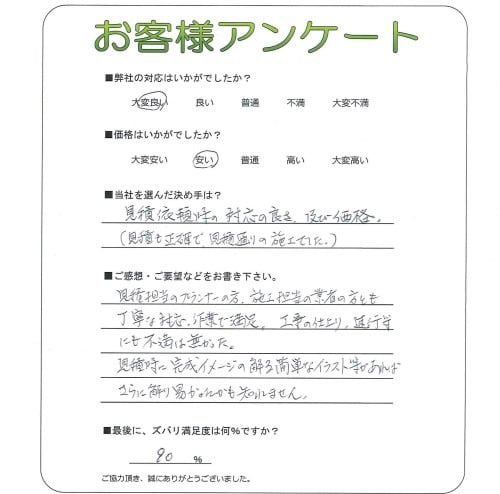 お客様アンケート
■弊社の対応はいかがでしたか？
大変良い 良い 普通 不満 大変不満
■価格はいかがでしたか？
大変安い 安い 普通 高い 大変高い
■当社を選んだ決め手は？
見積依頼時の対応の良さ、及び価格。
(見積も正確で、見積通りの施工でした。)
■ご感想・ご要望などをお書き下さい。
見積担当のプランナーの方、施工担当の業者の方とも
丁寧な対応、作業で満足。工事の仕上り、進行等
にも不満は無かった。
見積時に完成イメージの解る簡単なイラスト等があれば
さらに解り易かったかも知れません。
■最後に、ズバリ満足度は何%ですか？
90 %
ご協力頂き、誠にありがとうございました。